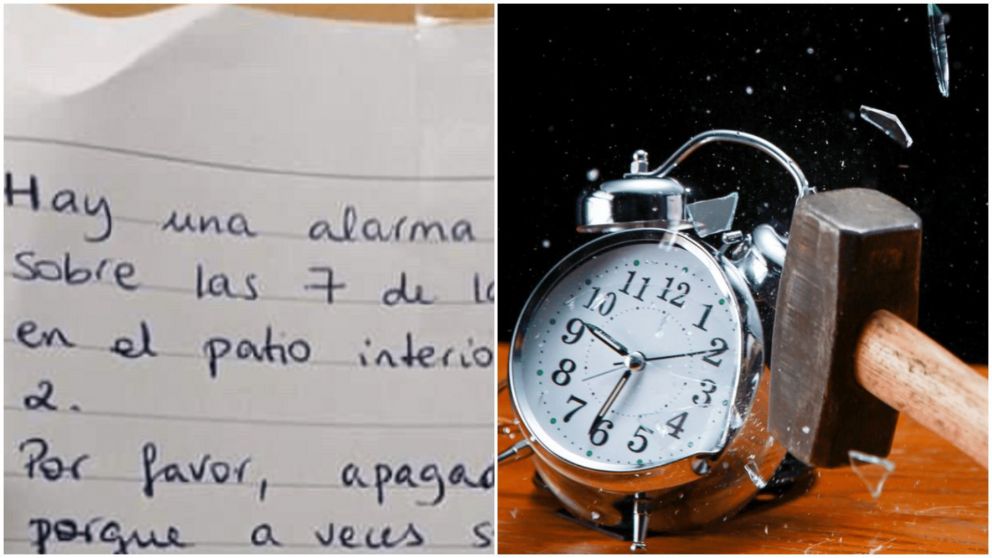 Hay una alarma
sobre las 7 de la
en el patio interio
2.
Por favor, apagad
porque a veces s
11 12 1
10 2
9 3
8 4
7 6 5